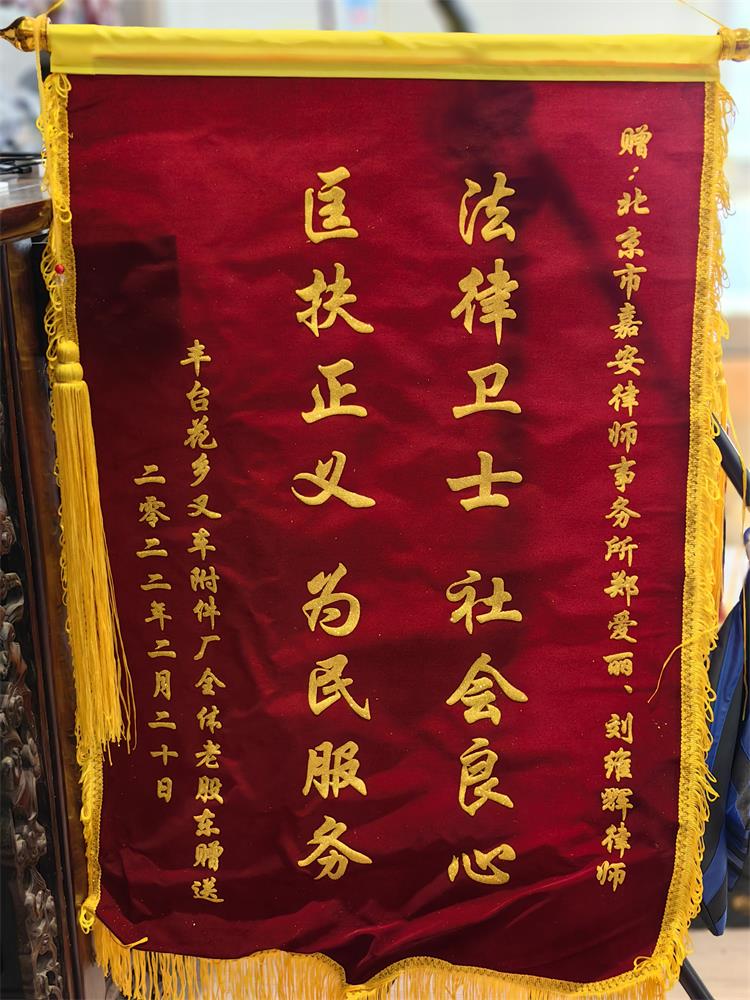 赠：北京市嘉安律师事务所郑爱丽、刘维辉律师
法律卫士 社会良心
匡扶正义 为民服务
丰台花乡叉车附件厂全体老股东赠送
二零二二年二月二十日